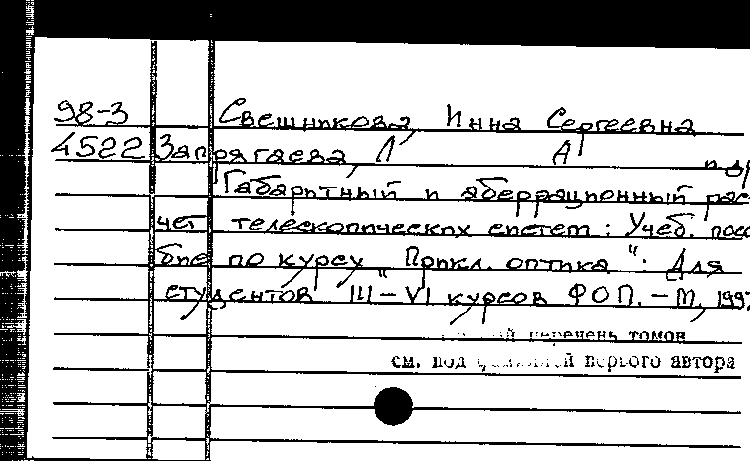 98-3 Свешникова, Инна Сергеевна
4522 Запрягаева, Л А
Габаритный и аберрационный рас-
чет телескопических систем: Учеб. посо
бие по курсу "Прикл. оптика": Для
студентов III-VI курсов ФОП. - М, 199
перечень томов
см. под первого автора